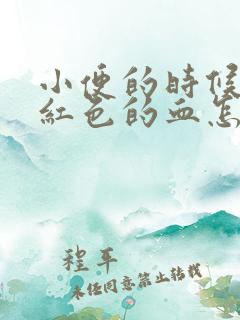 小便的时候
红色的血怎
程平
未经同意禁止转载